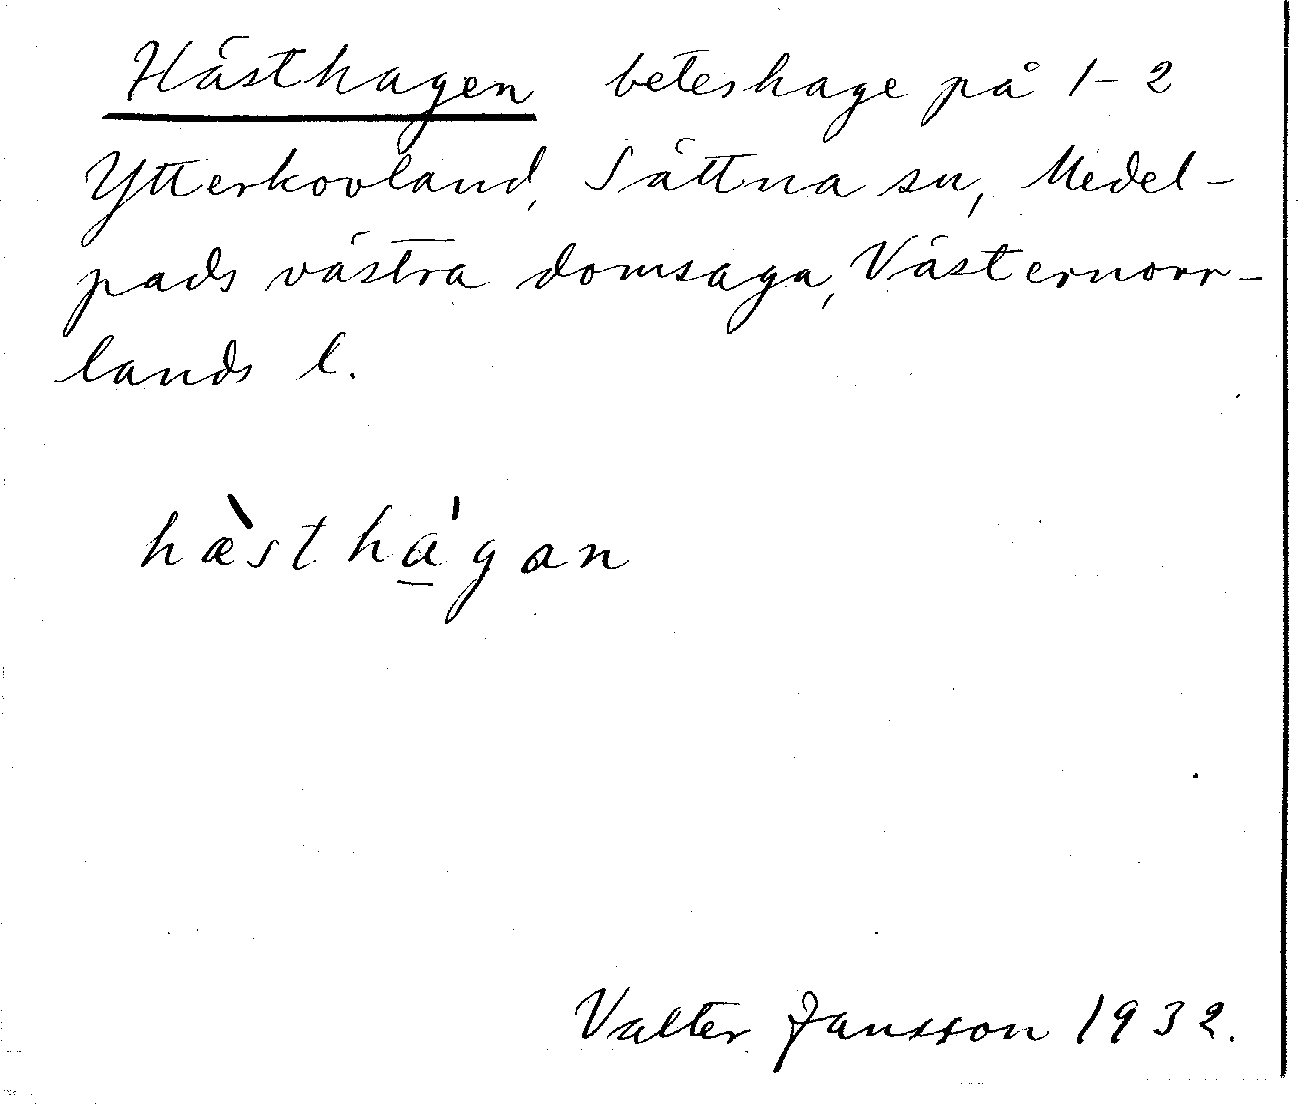 Hästhagen beteshage på 1-2
Ytterkovland, Sättna sn, Medel-
pads västra domsaga, Västernorr-
lands l.
hæ̀stha̲̍gan
Valter Jansson 1932.